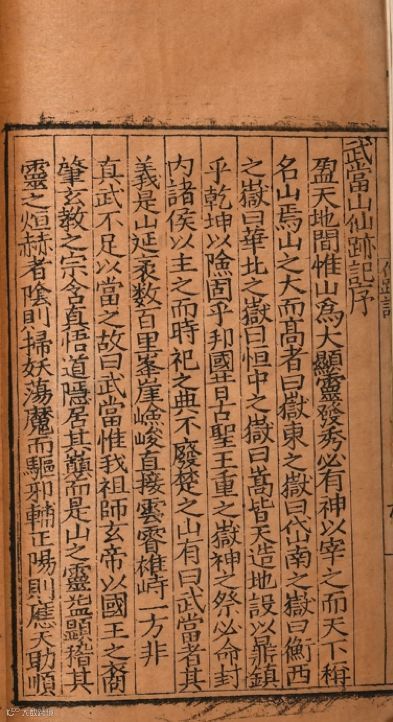 武當山仙跡記序
盈天地間惟山爲大顯靈發秀必有神以宰之而天下稱
名山焉山之大而髙者曰嶽東之嶽曰岱山南之嶽曰衡西
之嶽曰華北之嶽曰恒中之嶽曰嵩皆天造地設以鼎鎮
乎乾坤以險固乎邦國昔古聖王重之嶽神之祭必命封
内諸侯以主之而時祀之典不廢楚之山有曰武當者其
義是山延袤數百里峯崖嶮峻直接雲霄雄峙一方非
真武不足以當之故曰武當惟我祖師玄帝以國王之裔
肇玄教之宗含真悟道隱居其巔而是山之靈益顯稽其
靈之烜赫者陰則掃妖蕩魔而驅邪輔正陽則應天助順